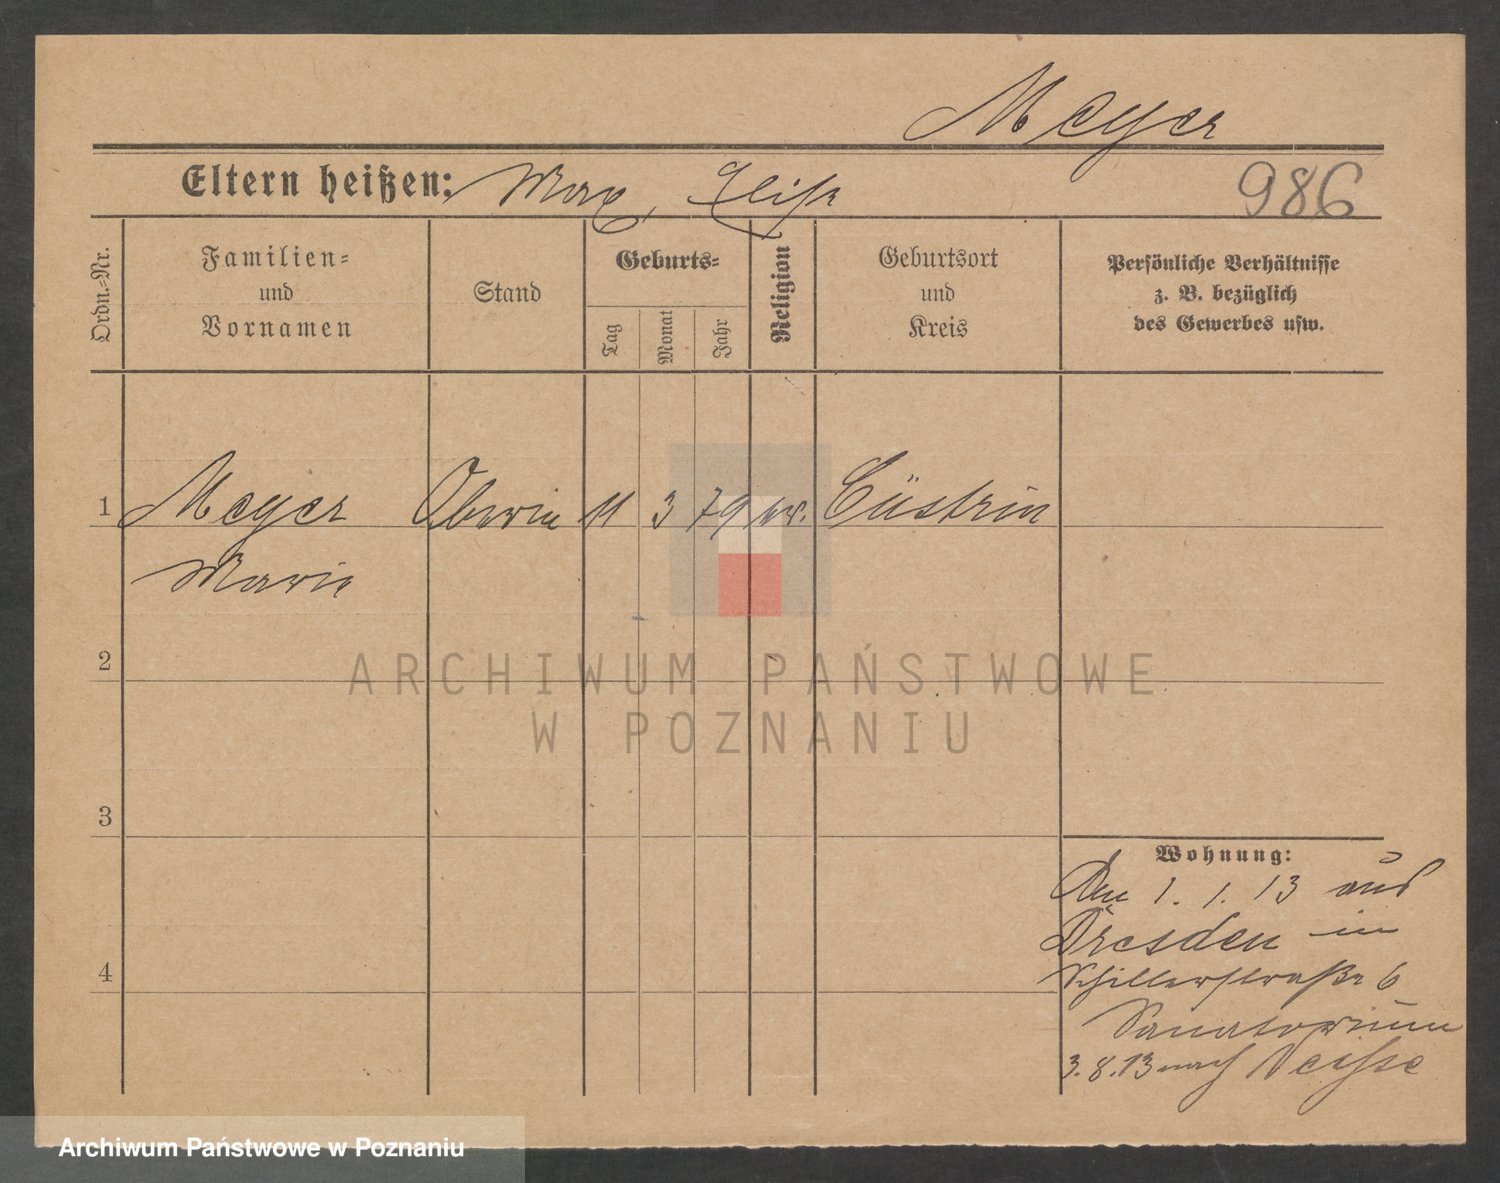 Meyer
Eltern heißen: Max, Elise
986
Ordn.-Nr.
Familien-
und
Vornamen
Stand
Geburts-
Tag
Monat
Jahr
Religion
Geburtsort
und
Kreis
Persönliche Verhältnisse
z. B. bezüglich
des Gewerbes usw.
1 Meyer Oberin 11 3 79 ev. Cüstrin
Marie
2
ARCHIWUM PAŃSTWOWE
W POZNANIU
3
Wohnung:
Den 1. 1. 13 aus
Dresden in
4
Schillerstraße 6
Sanatorium
3. 8. 13 nach Neisse
Archiwum Państwowe w Poznaniu